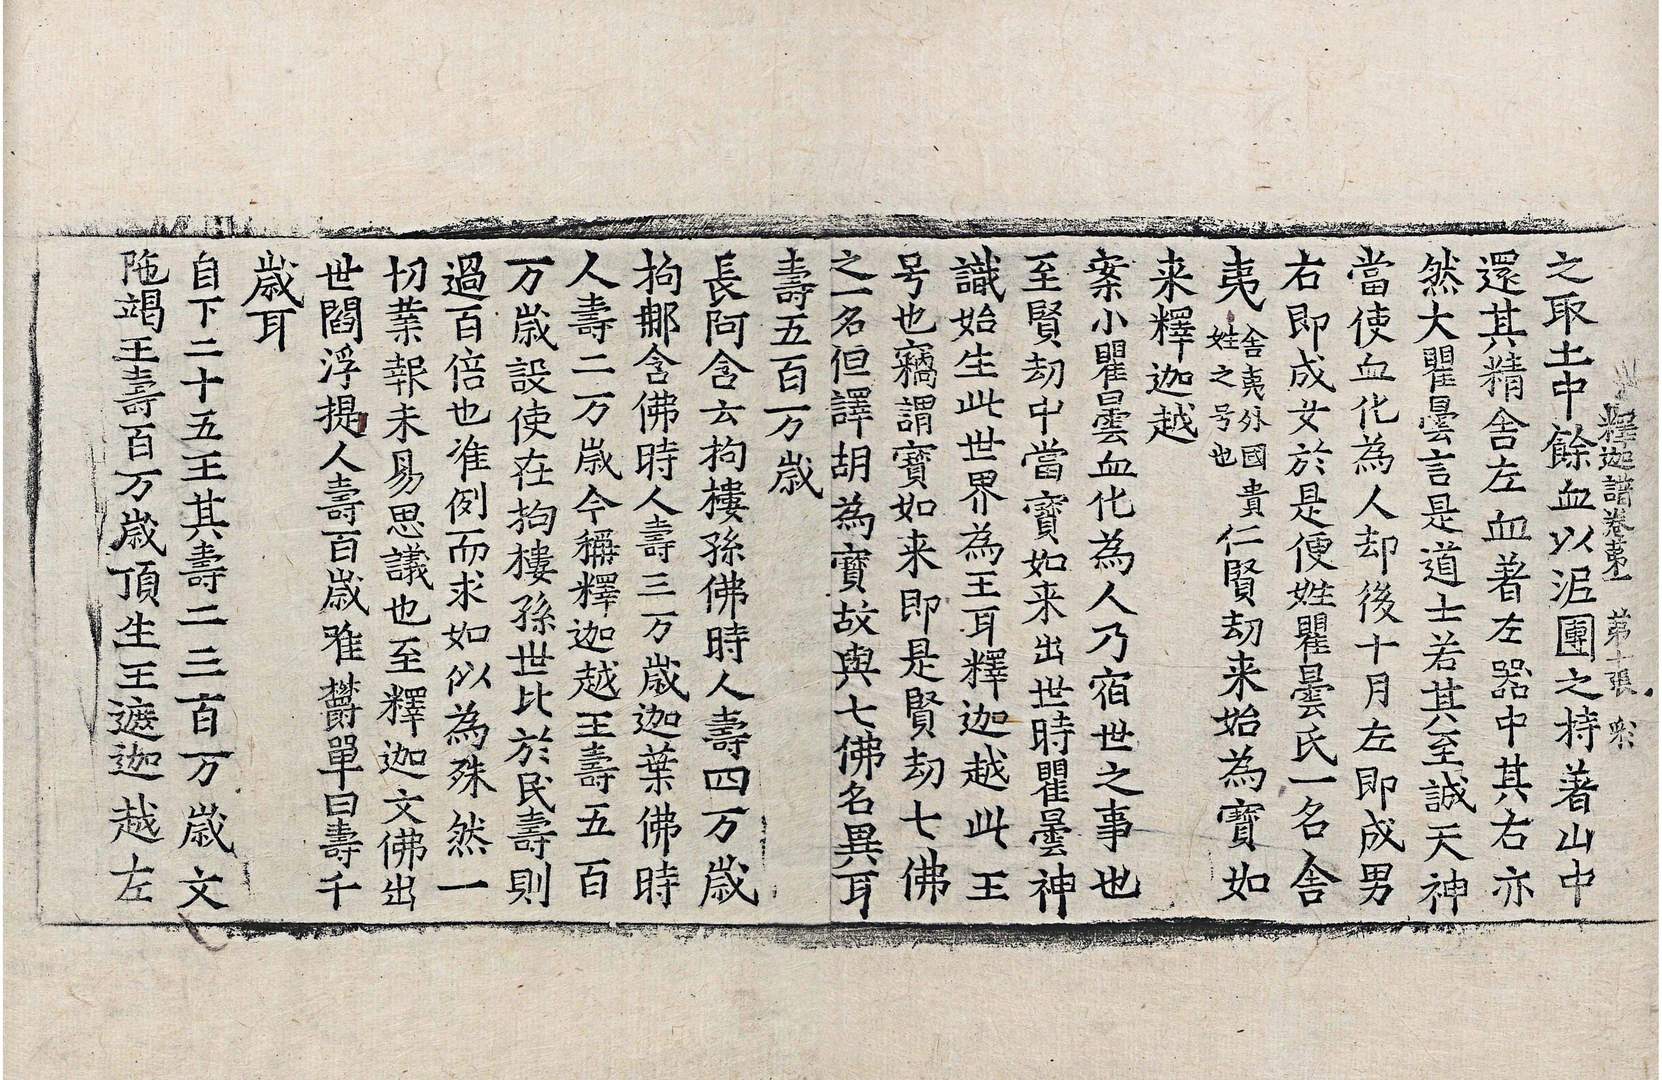 釋迦譜卷苐一 苐十張 
之取土中餘血以泥團之持著山中
還其精舍左血著左器中其右亦
然大瞿曇言是道士若其至誠天神
當使血化為人却後十月左即成男
右即成女於是便姓瞿曇氏一名舎
夷舍夷外國貴姓之号也仁賢刼来始為寶如
来釋迦越
案小瞿曇血化為人乃宿世之事也
至賢刼中當寳如来出世時瞿曇神
識始生此世界為王耳釋迦越此王
号也竊謂寳如来即是賢刼七佛
之一名但譯胡為寳故與七佛名異耳
壽五百万歳
長阿含云拘樓孫佛時人壽四万歳
拘郍含佛時人壽三万歳迦葉佛時
人壽二万歳今稱釋迦越王壽五百
万歳設使在拘樓孫世比於民壽則
過百倍也准例而求如似為殊然一
切業報未易思議也至釋迦文佛出
世閻浮提人壽百歳唯欝單曰壽千
歳耳
自下二十五王其壽二三百万歳文
陁竭王壽百万歳頂生王遮迦越左